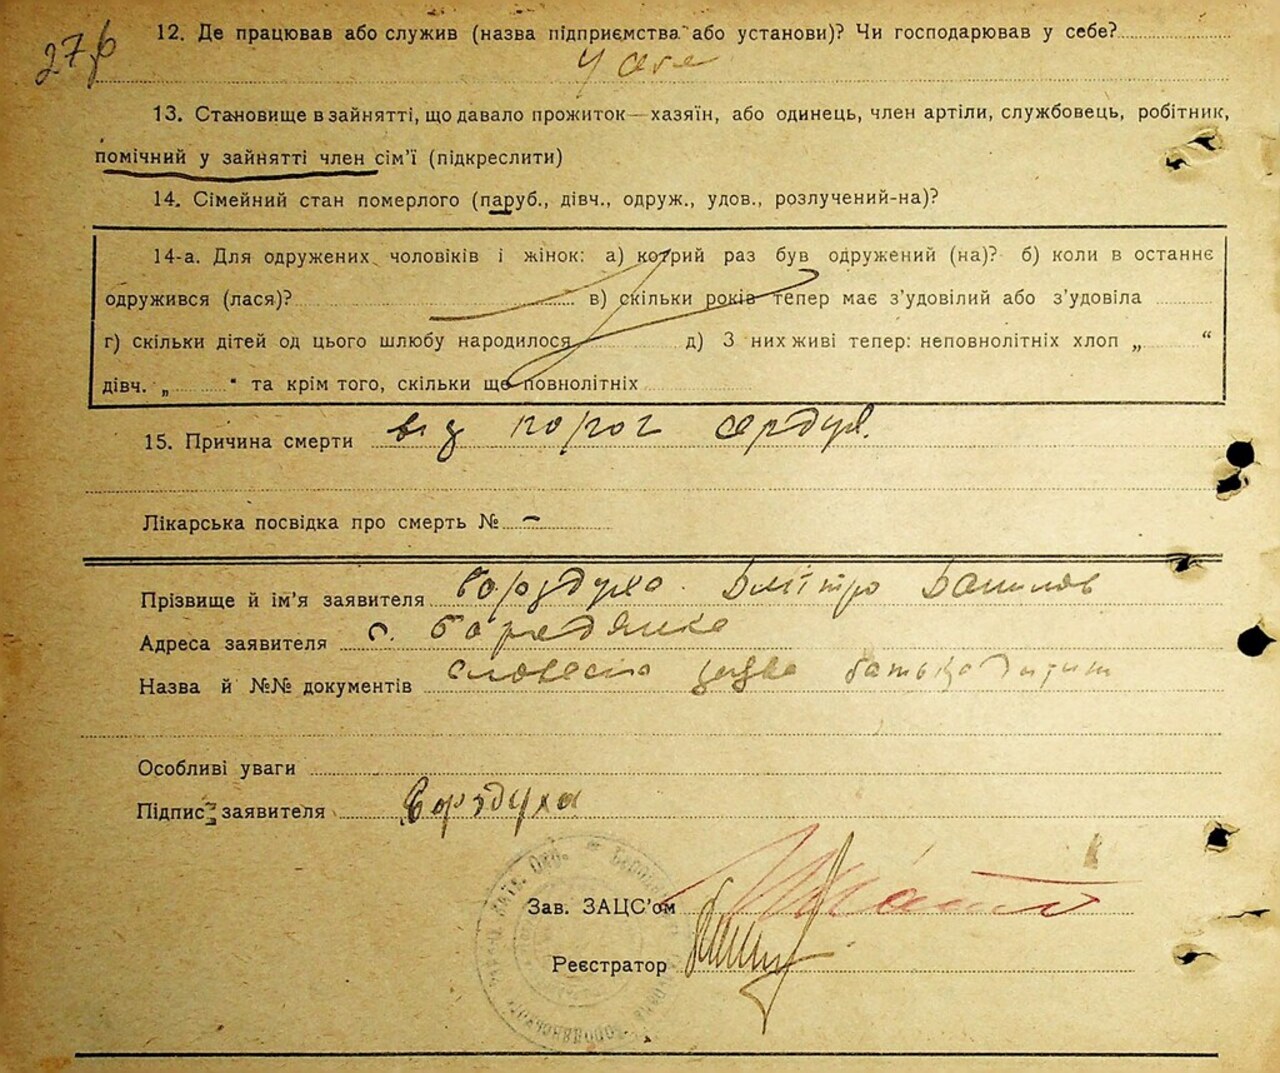 27б
12. Де працював або служив (назва підприємства або установи)? Чи господарював у себе?
У себе
13. Становище в зайнятті, що давало прожиток—хазяїн, або одинець, член артіли, службовець, робітник,
помічний у зайнятті член сім'ї (підкреслити)
14. Сімейний стан померлого (паруб., дівч., одруж., удов., розлучений-на)?
14-а. Для одружених чоловіків і жінок: а) котрий раз був одружений (на)? б) коли в останнє
одружився (лася)? в) скільки років тепер має з'удовілий або з'удовіла
г) скільки дітей од цього шлюбу народилося д) З них живі тепер: неповнолітніх хлоп „ “
дівч. „ “ та крім того, скільки ще повнолітніх
15. Причина смерти від порог сердця.
Лікарська посвідка про смерть № –
Прізвище й ім'я заявителя Дмітро Данилов
Адреса заявителя с. Бородянка
Назва й №№ документів словесно батька
Особливі уваги
Підпис заявителя
Зав. ЗАЦС'ом
Реєстратор